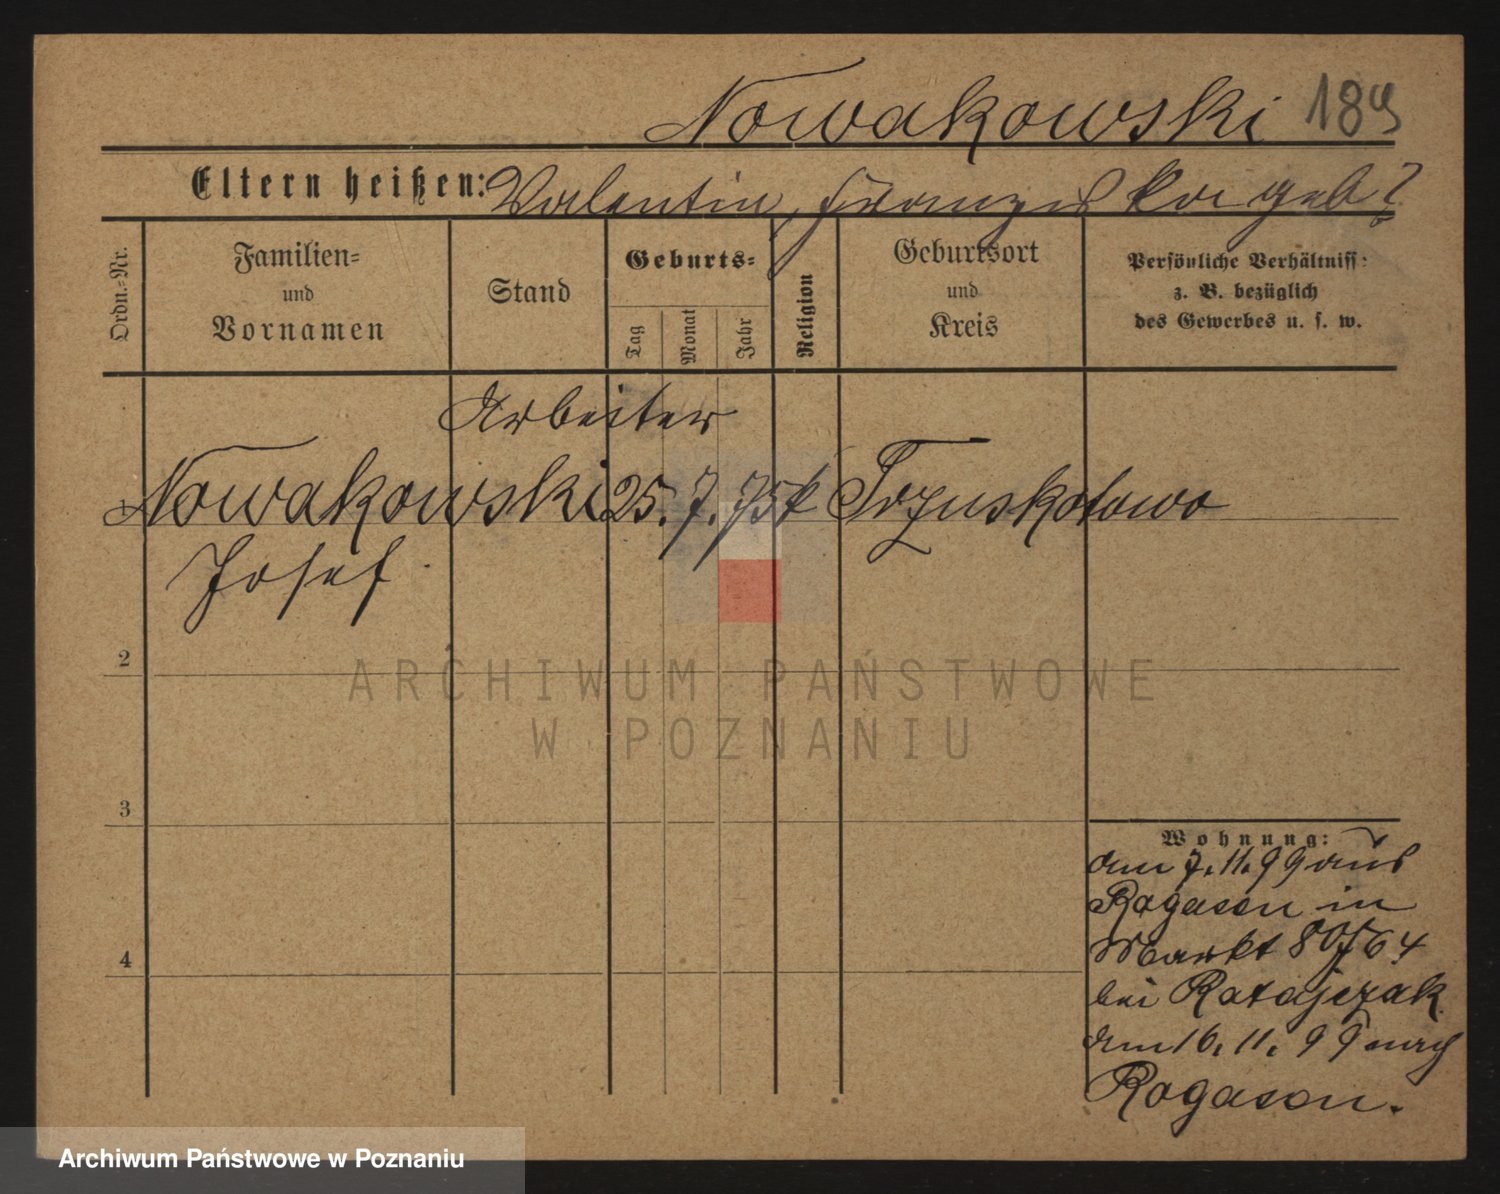 Nowakowski 189
Eltern heißen: Valentin, Franziska geb?
Ordn.-Nr.
Familien-
und
Vornamen
Stand
Geburts-
Tag
Monat
Jahr
Religion
Geburtsort
und
Kreis
Persönliche Verhältniss:
z. B. bezüglich
des Gewerbes u. s. w.
Arbeiter
1 Nowakowski 25. 7. 75 k Trzuskotowo
Josef
2
ARCHIWUM PAŃSTWOWE
W POZNANIU
3
Wohnung:
am 7. 11. 99 aus
Rogasen in
Markt 80/64
bei Ratajczak
am 16. 11. 99 nach
Rogasen.
4
Archiwum Państwowe w Poznaniu